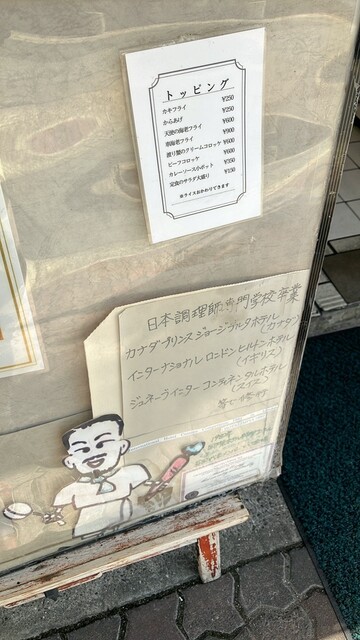 トッピング
カキフライ ¥250
からあげ ¥250
天使の海老フライ ¥600
車海老フライ ¥900
渡り蟹のクリームコロッケ ¥600
ビーフコロッケ ¥600
カレーソース小ポット ¥350
定食のサラダ大盛り ¥150
※ライスおかわりできます
日本調理師専門学校卒業
カナダプリンスジョージシタルタホテル
(カナダ)
インターナショナル ロンドンヒルトンホテル
(イギリス)
ジュネーヴインターコンチネンタルホテル
(スイス)
等で修行